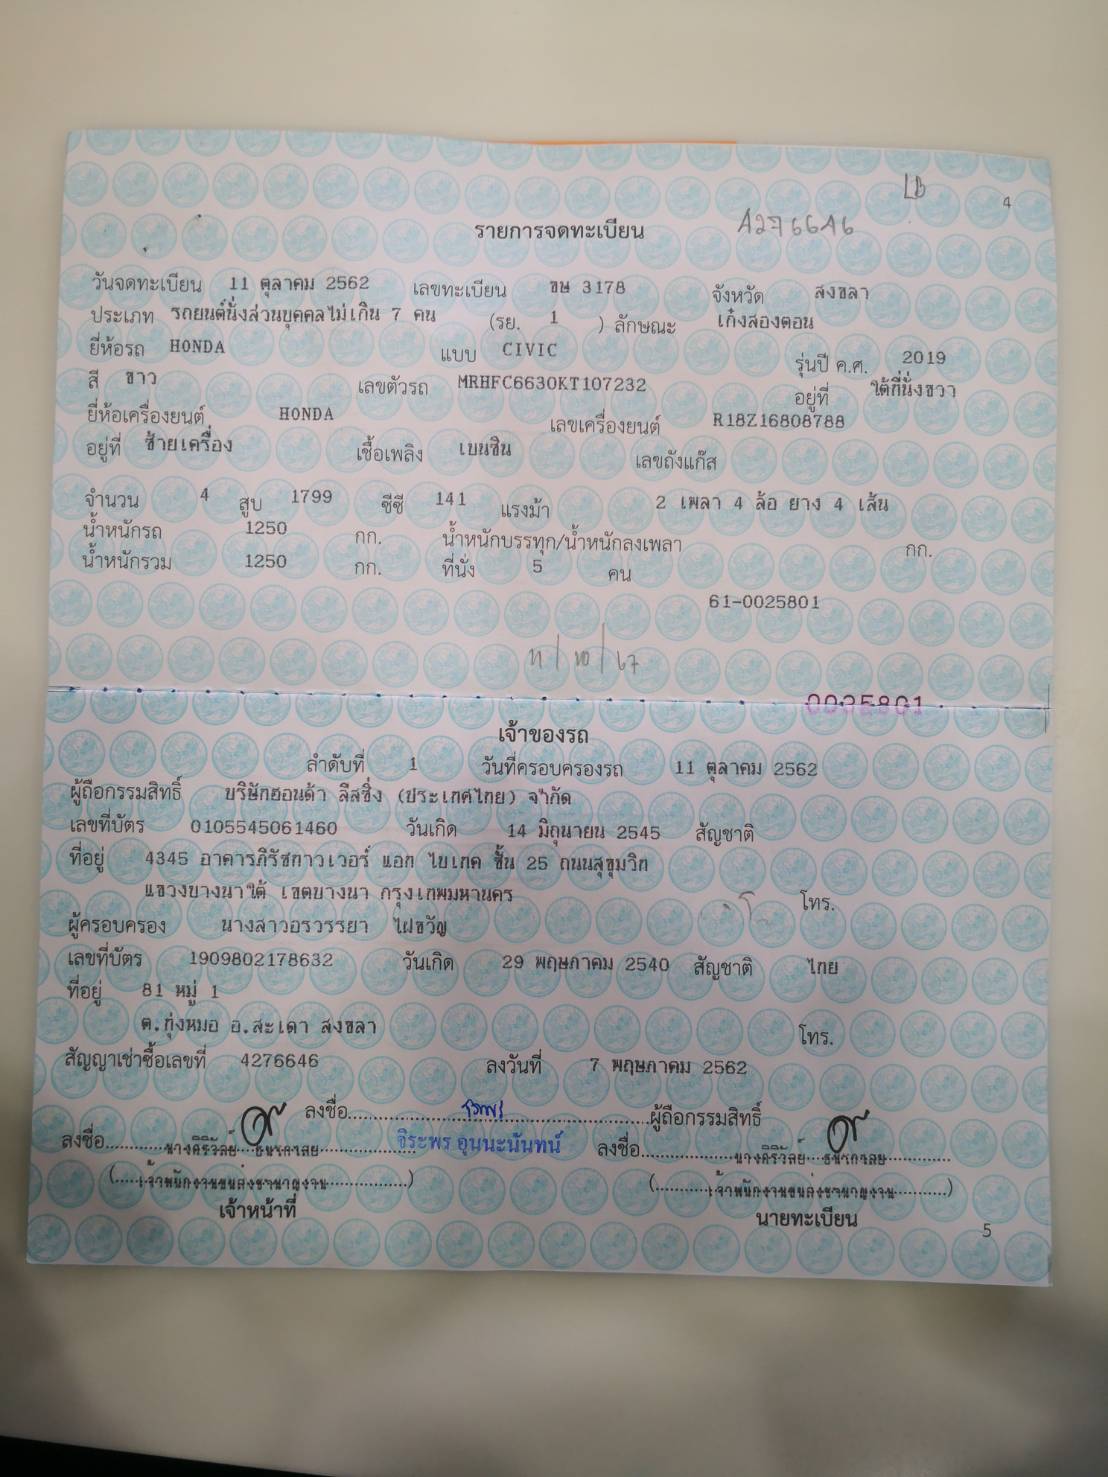 LB
4
รายการจดทะเบียน A276646
วันจดทะเบียน 11 ตุลาคม 2562 เลขทะเบียน ขษ 3178 จังหวัด สงขลา
ประเภท รถยนต์นั่งส่วนบุคคลไม่เกิน 7 คน (รย. 1 ) ลักษณะ เก๋งสองตอน
ยี่ห้อรถ HONDA แบบ CIVIC รุ่นปี ค.ศ. 2019
สี ขาว เลขตัวรถ MRHFC6630KT107232 อยู่ที่ ใต้ที่นั่งขวา
ยี่ห้อเครื่องยนต์ HONDA เลขเครื่องยนต์ R18Z16808788
อยู่ที่ ซ้ายเครื่อง เชื้อเพลิง เบนซิน เลขถังแก๊ส
จำนวน 4 สูบ 1799 ซีซี 141 แรงม้า 2 เพลา 4 ล้อ ยาง 4 เส้น
น้ำหนักรถ 1250 กก. น้ำหนักบรรทุก/น้ำหนักลงเพลา กก.
น้ำหนักรวม 1250 กก. ที่นั่ง 5 คน
61-0025801
11/10/67
0025801
เจ้าของรถ
ลำดับที่ 1 วันที่ครอบครองรถ 11 ตุลาคม 2562
ผู้ถือกรรมสิทธิ์ บริษัทฮอนด้า ลีสซิ่ง (ประเทศไทย) จำกัด
เลขที่บัตร 0105545061460 วันเกิด 14 มิถุนายน 2545 สัญชาติ
ที่อยู่ 4345 อาคารภิรัชทาวเวอร์ แอท ไบเทค ชั้น 25 ถนนสุขุมวิท
แขวงบางนาใต้ เขตบางนา กรุงเทพมหานคร โทร.
ผู้ครอบครอง นางสาวอรวรรยา ไฝขวัญ
เลขที่บัตร 1909802178632 วันเกิด 29 พฤษภาคม 2540 สัญชาติ ไทย
ที่อยู่ 81 หมู่ 1
ต.ทุ่งหมอ อ.สะเดา สงขลา โทร.
สัญญาเช่าซื้อเลขที่ 4276646 ลงวันที่ 7 พฤษภาคม 2562
ลงชื่อ ผู้ถือกรรมสิทธิ์
ลงชื่อ นางศิริวัลย์ ธนรกาลย จิระพร อุนนะนันทน์ ลงชื่อ นางศิริวัลย์ ธนรกาลย
(เจ้าพนักงานขนส่งชำนาญงาน) (เจ้าพนักงานขนส่งชำนาญงาน)
เจ้าหน้าที่ นายทะเบียน
5